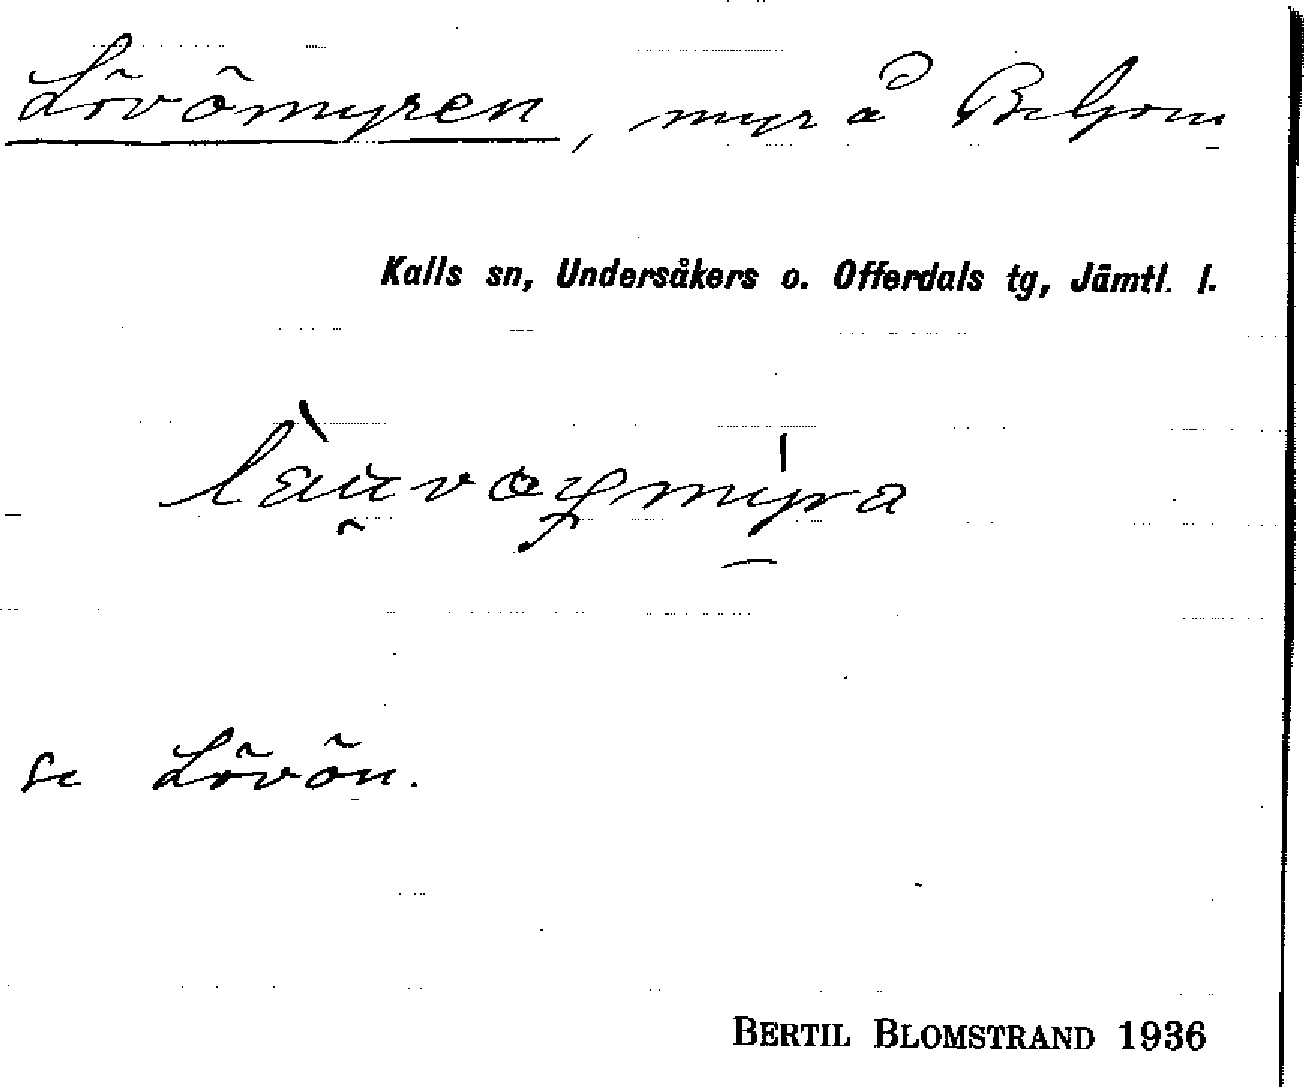 Lövömyren, myr å Beljom
Kalls sn, Undersåkers o. Offerdals tg, Jämtl. l.
se Lövön.
BERTIL BLOMSTRAND 1936